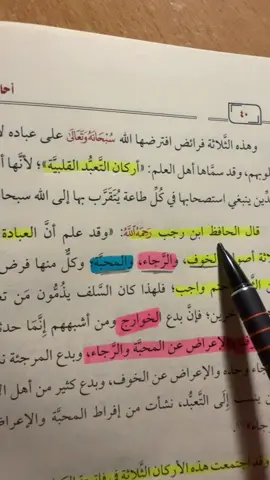 أحا
٤٠
وهذه الثَّلاثة فرائض افترضها الله سُبْحَانَهُوَتَعَالَى على عباده
لوبهم، وقد سمَّاها أهل العلم: «أركان التَّعبُّد القلبيَّة»؛ لأنَّها
دِّين ينبغي استصحابها في كُلِّ طاعة يُتَقَرَّب بها إلى الله
قال الحافظ ابن رجب رَحِمَهُ اللَّهُ: «وقد علم أنَّ العبادة
الخوف، والرَّجاء، والمحبَّة، وكلٌّ منها فرض
واجب؛ فلهذا كان السَّلف يذُمُّون مَن
خرين؛ فإنَّ بدع الخوارج ومن أشبههم إنَّما
والإعراض عن المحبَّة والرَّجاء، وبدع المرجئة
جاء وحده والإعراض عن الخوف، وبدع كثير من أهل
ينسب إلى التَّعبُّد، نشأت من إفراط المحبَّة والإعراض
وقد اجتمعت هذه الأركان الثَّلاثة في